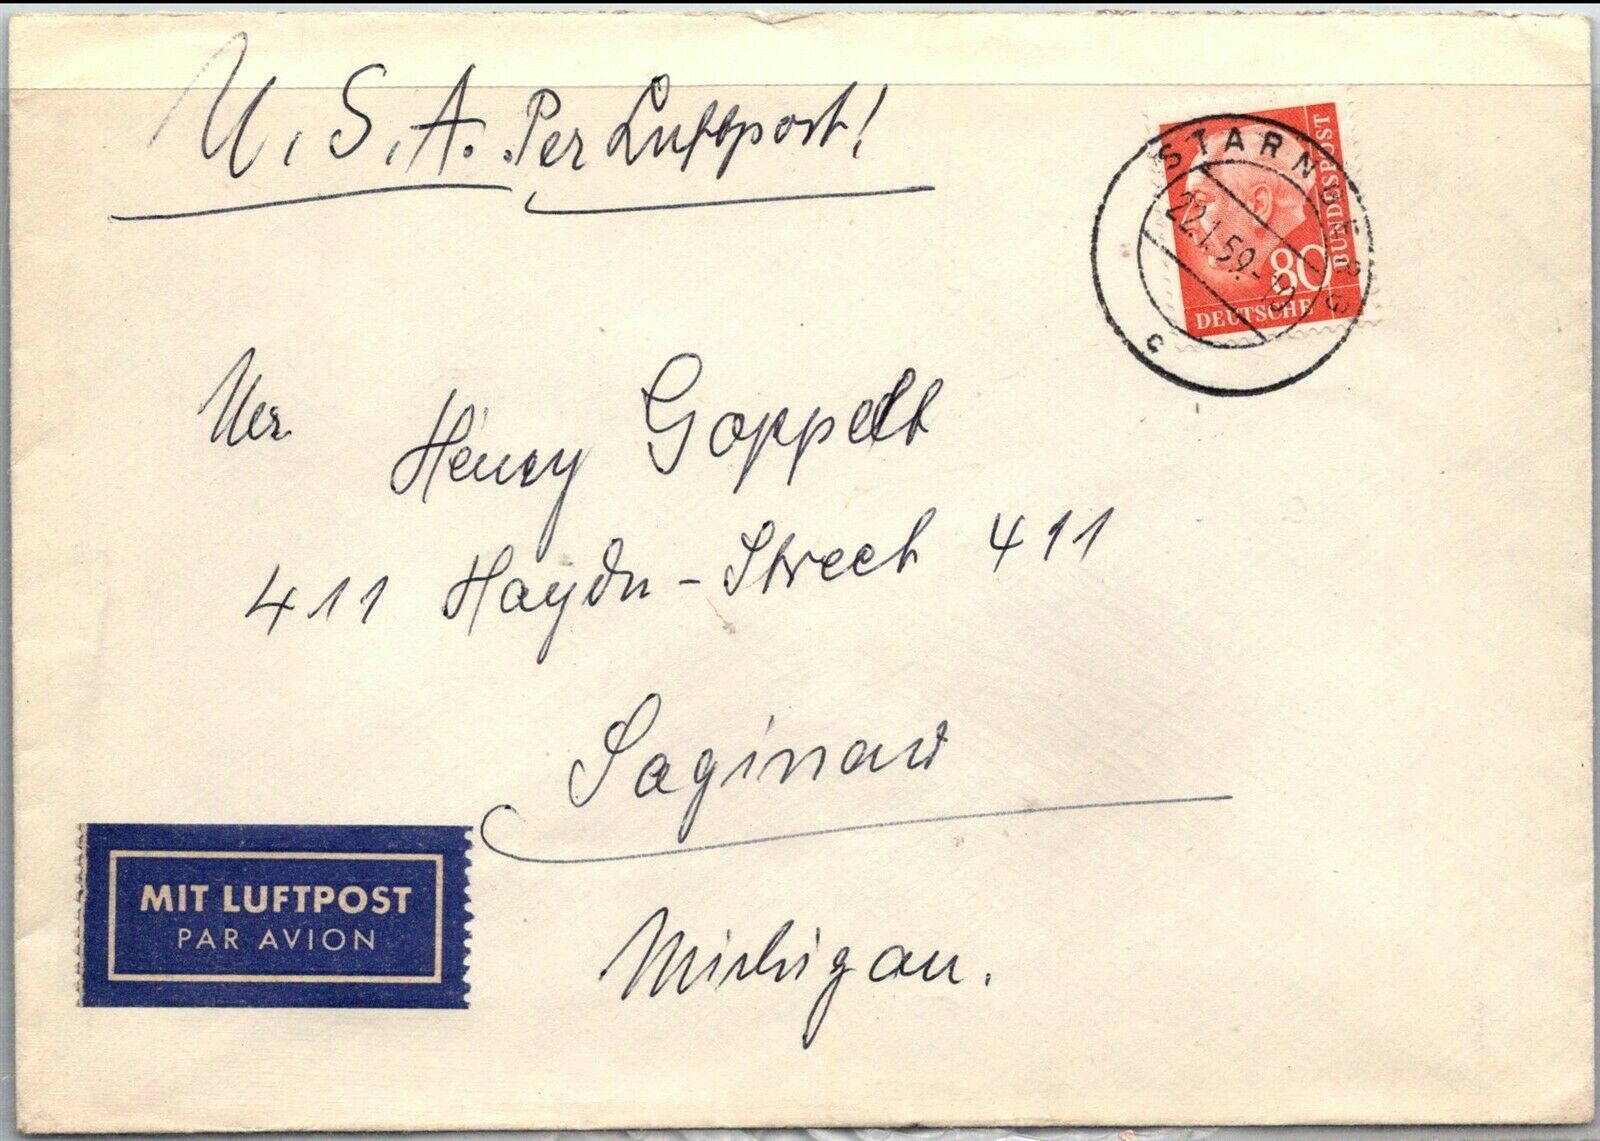 U.S.A. Per Luftpost!
STARNBERG
22.1.59.-19
c
BUNDESPOST
80
DEUTSCHE
Mer.
Henry Goppelt
411 Haydn-Street 411
Saginaw
MIT LUFTPOST
PAR AVION
Michigan.